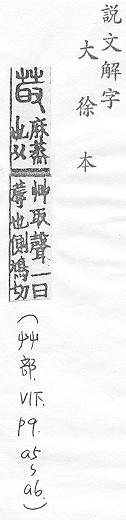 説文解字
大徐本
菆 麻蒸
也从
艸取聲一曰
蓐也側鳩切
(艸部. V1下. p9. a5~a6.)